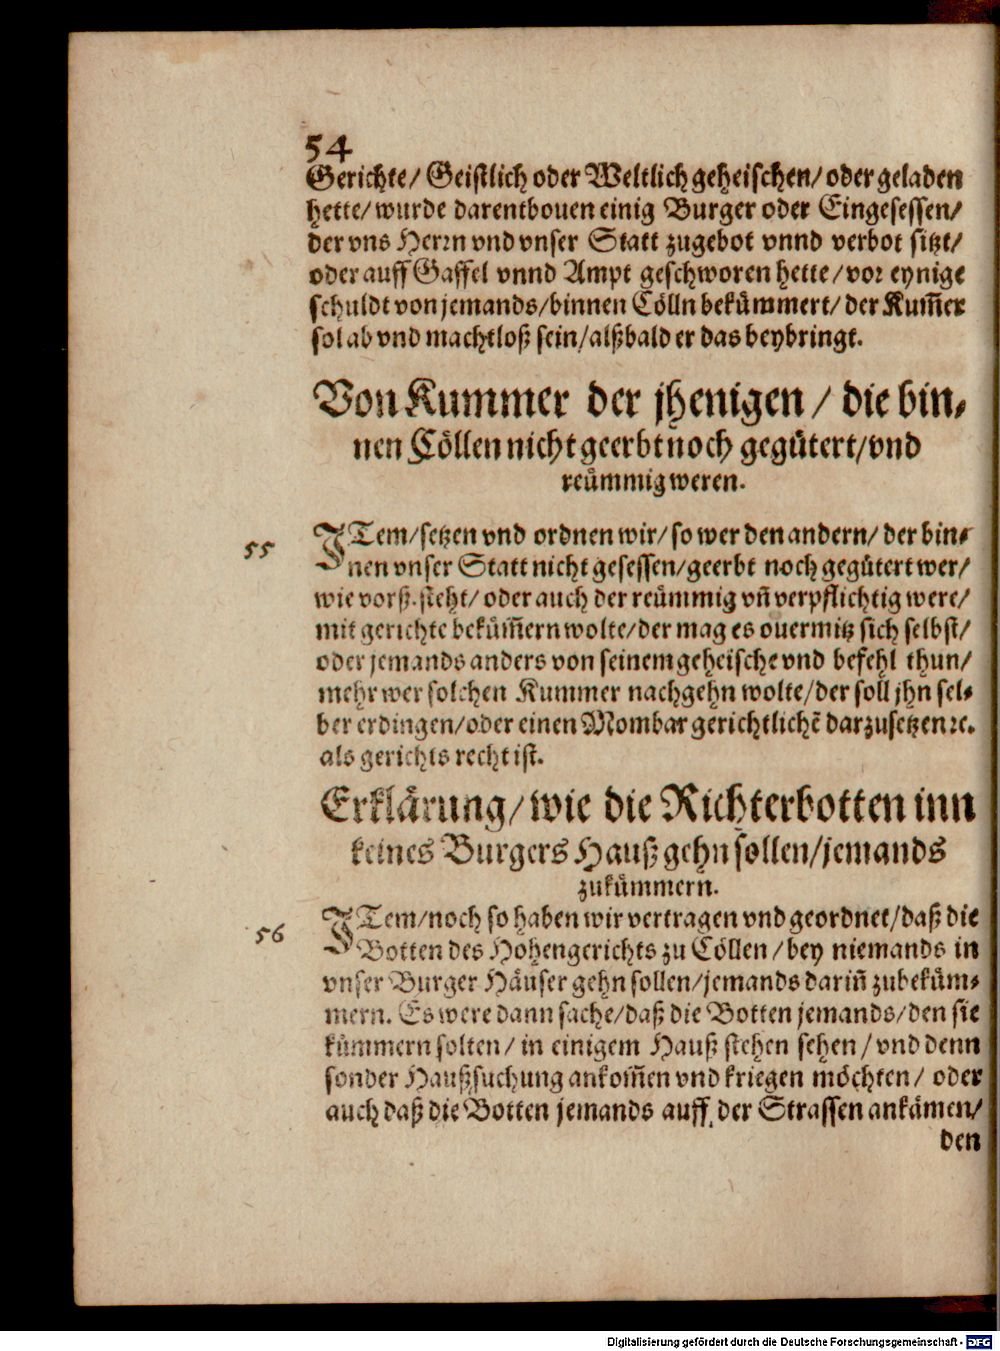 54
Gerichte/ Geistlich oder Weltlich geheischen/ oder geladen
hette/ wurde darentbouen einig Burger oder Eingesessen/
der vns Herrn vnd vnser Statt zugebot vnnd verbot sitzt/
oder auff Gaffel vnnd Ampt geschworen hette/ vor eynige
schuldt von jemands/ binnen Cölln bekümmert/ der Kum̃er
sol ab vnd machtloß sein/ alßbald er das beybringt.
Von Kummer der jhenigen / die bin-
nen Cöllen nicht geerbt noch gegütert/ vnd
reümmig weren.
55
ITem/ setzen vnd ordnen wir/ so wer den andern/ der bin-
nen vnser Statt nicht gesessen/ geerbt noch gegütert wer/
wie vorß. steht/ oder auch der reümmig vñ verpflichtig were/
mit gerichte beküm̃ern wolte/ der mag es ouermitz sich selbst/
oder jemands anders von seinem geheische vnd befehl thun/
mehr wer solchen Kummer nachgehn wolte/ der soll jhn sel-
ber erdingen/ oder einen Mombar gerichtlichẽ darzusetzen ꝛc.
als gerichts recht ist.
Erklärung/ wie die Richterbotten inn
keines Burgers Hauß gehn sollen/ jemands
zukümmern.
56
ITem/ noch so haben wir vertragen vnd geordnet/ daß die
Botten des Hohengerichts zu Cöllen / bey niemands in
vnser Burger Häuser gehn sollen/ jemands dariñ zubeküm-
mern. Es were dann sache/ daß die Botten jemands/ den sie
kümmern solten/ in einigem Hauß stehen sehen / vnd denn
sonder Haußsuchung ankom̃en vnd kriegen möchten/ oder
auch daß die Botten jemands auff der Strassen ankämen/
den
Digitalisierung gefördert durch die Deutsche Forschungsgemeinschaft - DFG